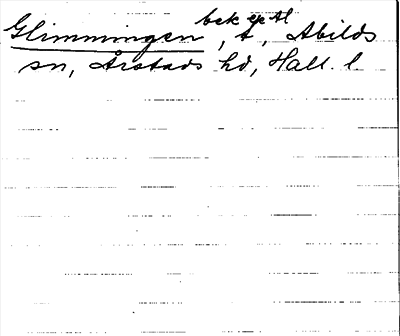 bek ej tl
Glimmingen, t, Abilds
sn, Årstads hd, Hall. l